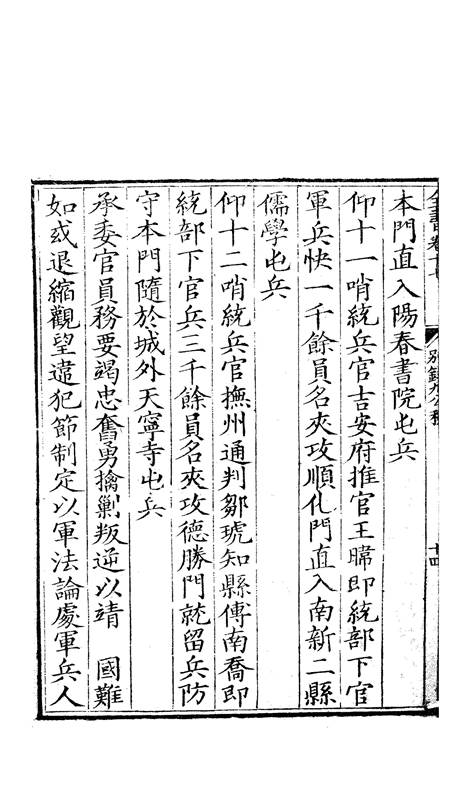 全書卷十七
別錄九公移
十四
本門直入陽春書院屯兵
仰十一哨統兵官吉安府推官王暐即統部下官
軍兵快一千餘員名夾攻順化門直入南新二縣
儒學屯兵
仰十二哨統兵官撫州通判鄒琥知縣傅南喬即
統部下官兵三千餘員名夾攻德勝門就留兵防
守本門隨於城外天寧寺屯兵
承委官員務要竭忠奮勇擒剿叛逆以靖 國難
如或退縮觀望違犯節制定以軍法論處軍兵人